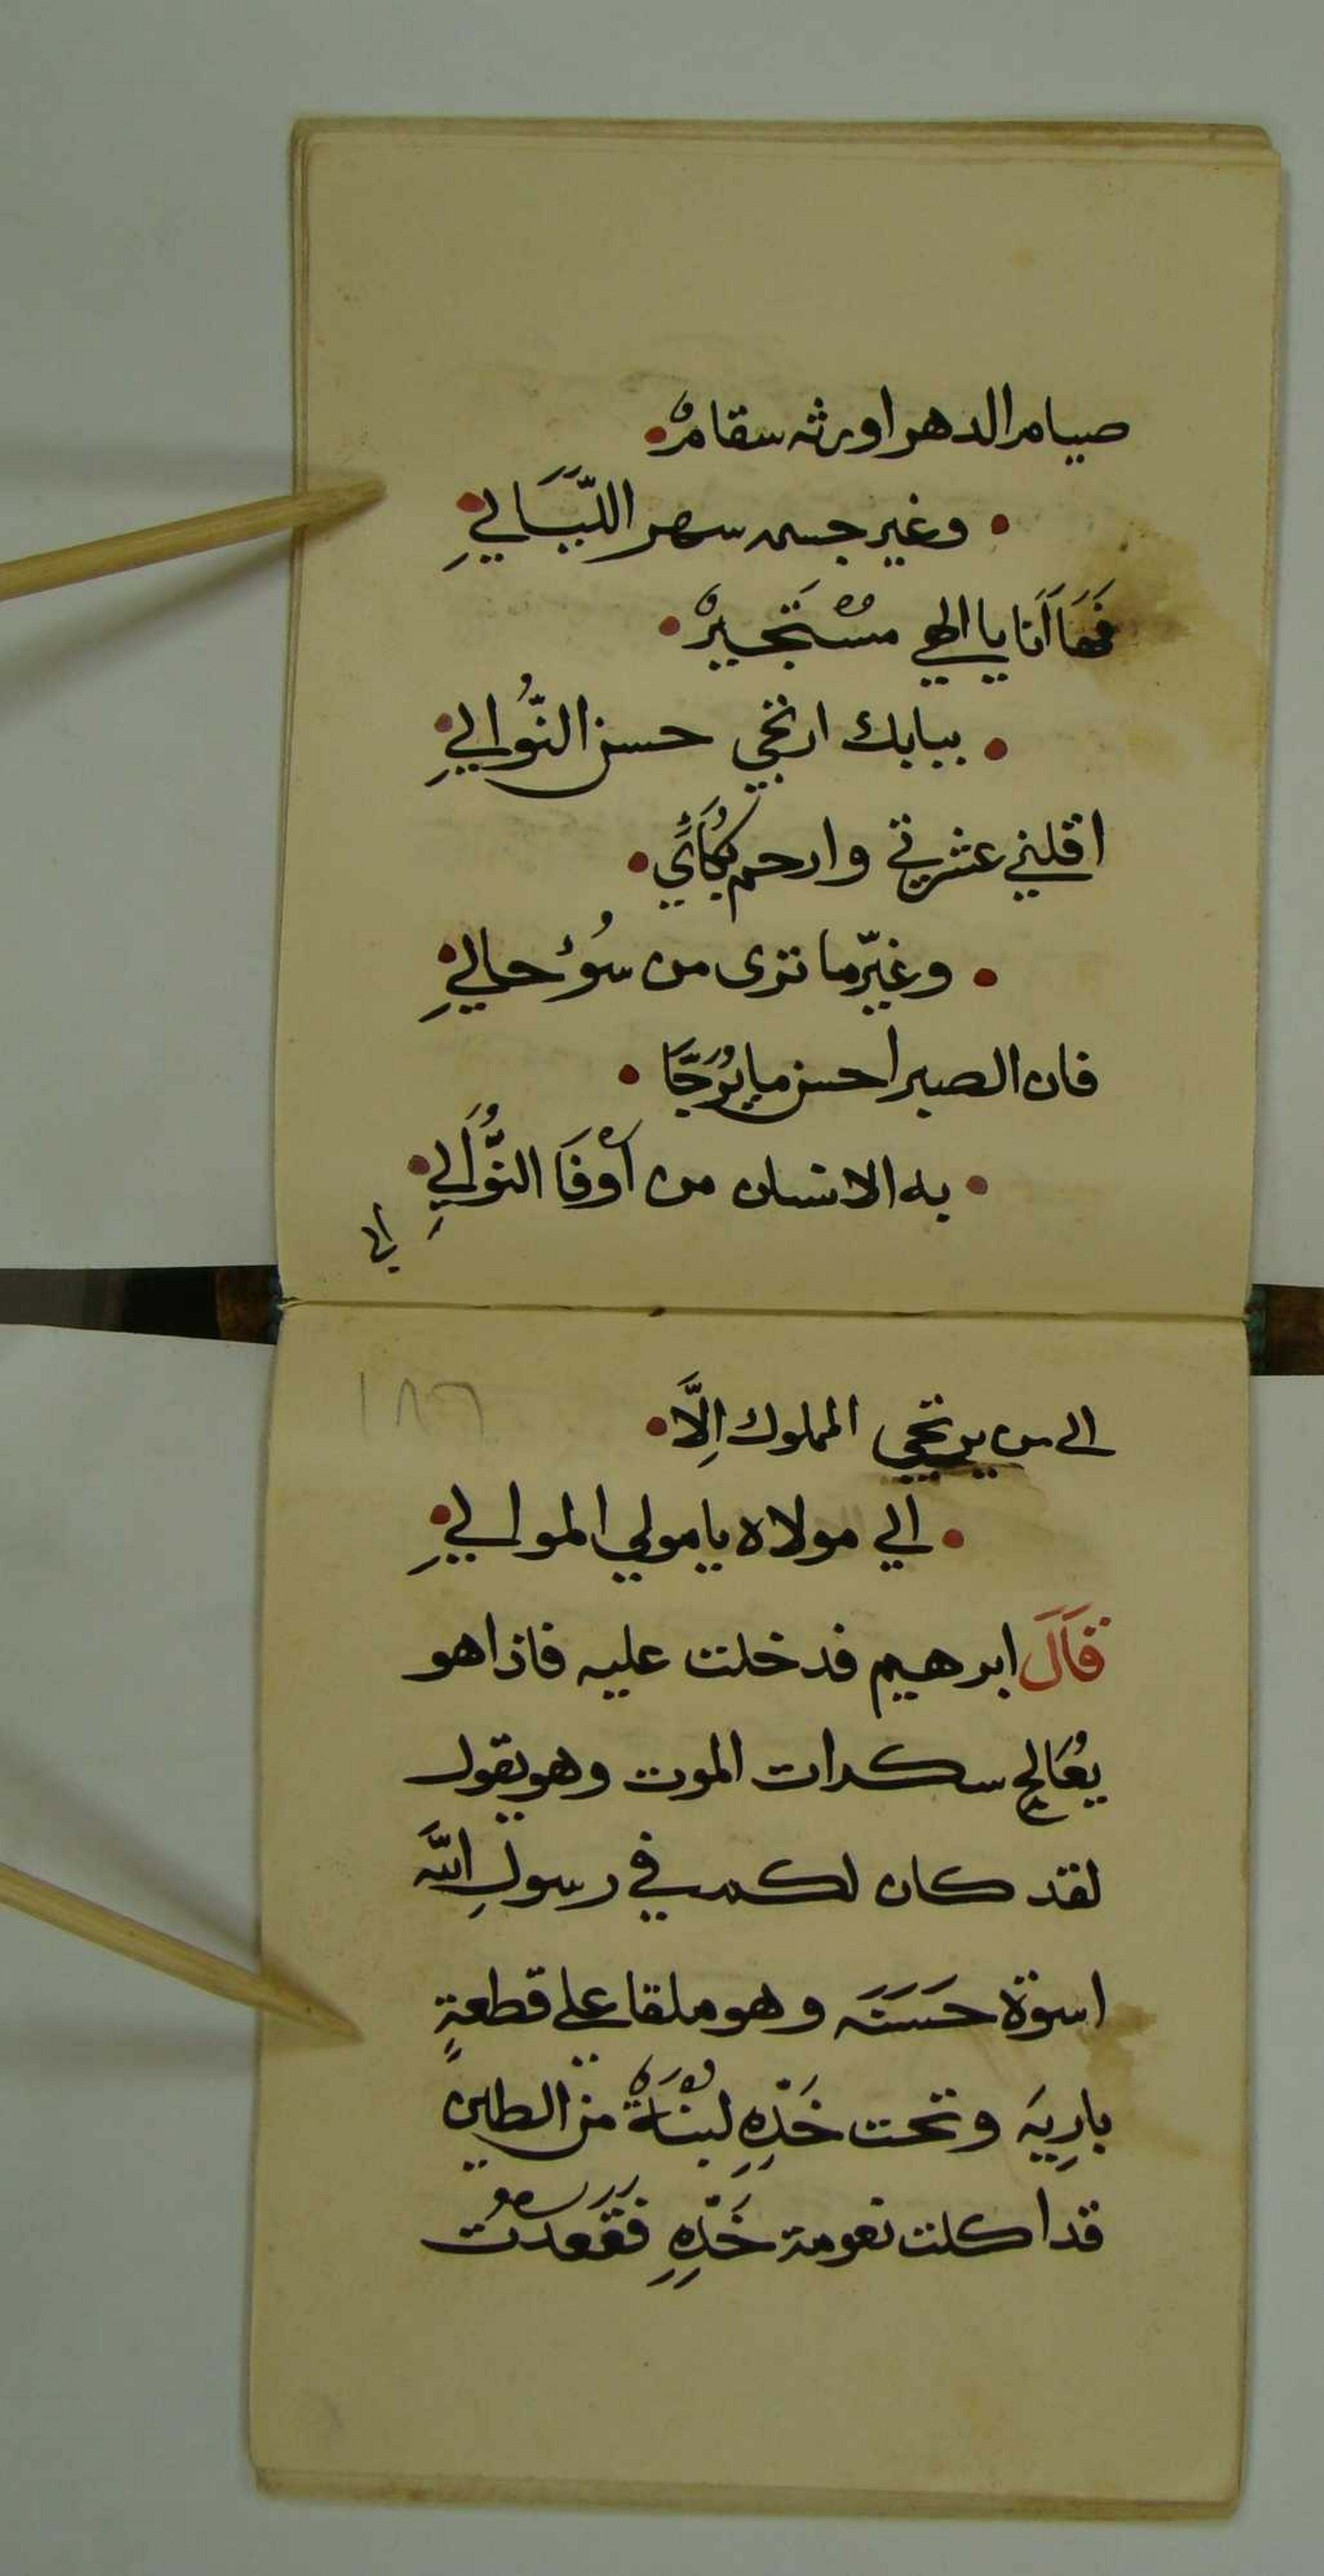 صيام الدهر اورثه سقامٌ
وغير جسمه سهر اللّيَالي
فَهَا اَنَا يا الهي مسْتَجيرٌ
ببابك ارتجي حسن النُّوالي
اقلني عثرتي وارحم بُكَائي
وغيّر ما ترى من سُوٓء حالي
فان الصبر احسن ما يُرَجَّا
به الانسان من اَوْفَا النُّوَالي
الى
١٨٦
الى من يرتجي المملوك اِلَّا
الي مولاه يا مولي الموالي
قَالَ ابرهيم فدخلت عليه فاذا هو
يُعَالج سكرات الموت وهو يقول
لقد كان لكم في رسولِ اللّه
اسوة حَسَنَه وهو ملقا علي قطعةٍ
بارِيَه وتحت خَدِّهِ لبْنَةٌ من الطين
قد اكلت نعومة خَدِّهِ فَقَعَدْتُ